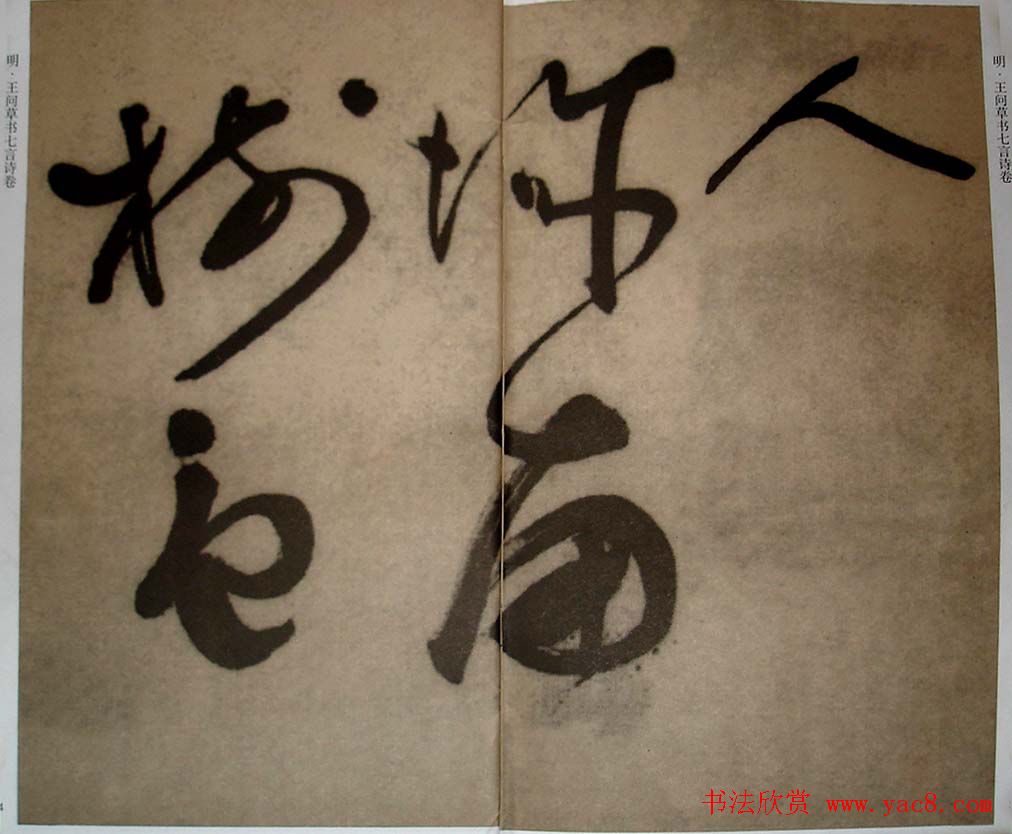 明·王问草书七言诗卷
人
樹色
明·王问草书七言诗卷
4
书法欣赏 www.yac8.com